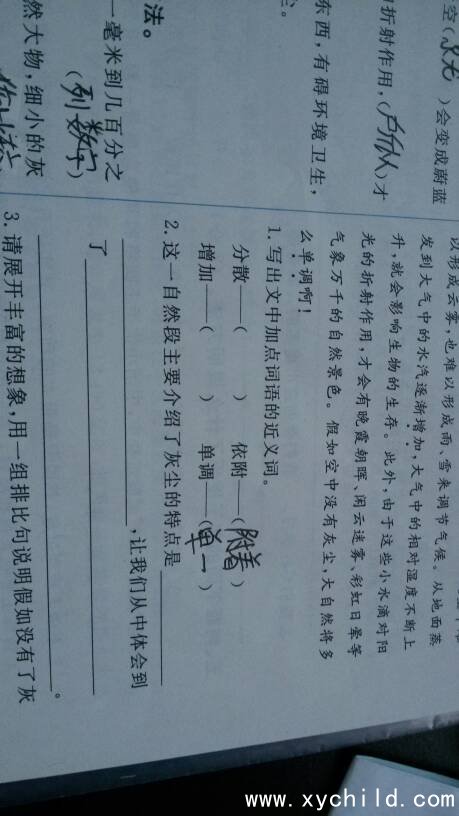 空(  )会变成蔚蓝
折射作用,(  )才
东西,有碍环境卫生,
法。
一毫米到几百分之
(列数字)
然大物,细小的灰
以形成云雾,也难以形成雨、雪来调节气候。从地面蒸
发到大气中的水汽逐渐增加,大气中的相对湿度不断上
升,就会影响生物的生存。此外,由于这些小水滴对阳
光的折射作用,才会有晚霞朝晖、闲云迷雾、彩虹日晕等
气象万千的自然景色。假如空中没有灰尘,大自然将多
么单调啊!
1. 写出文中加点词语的近义词。
分散——(  ) 依附——(附着)
增加——(  ) 单调——(单一)
2. 这一自然段主要介绍了灰尘的特点是
,让我们从中体会到
了 。
3. 请展开丰富的想象,用一组排比句说明假如没有了灰
www.xychild.com